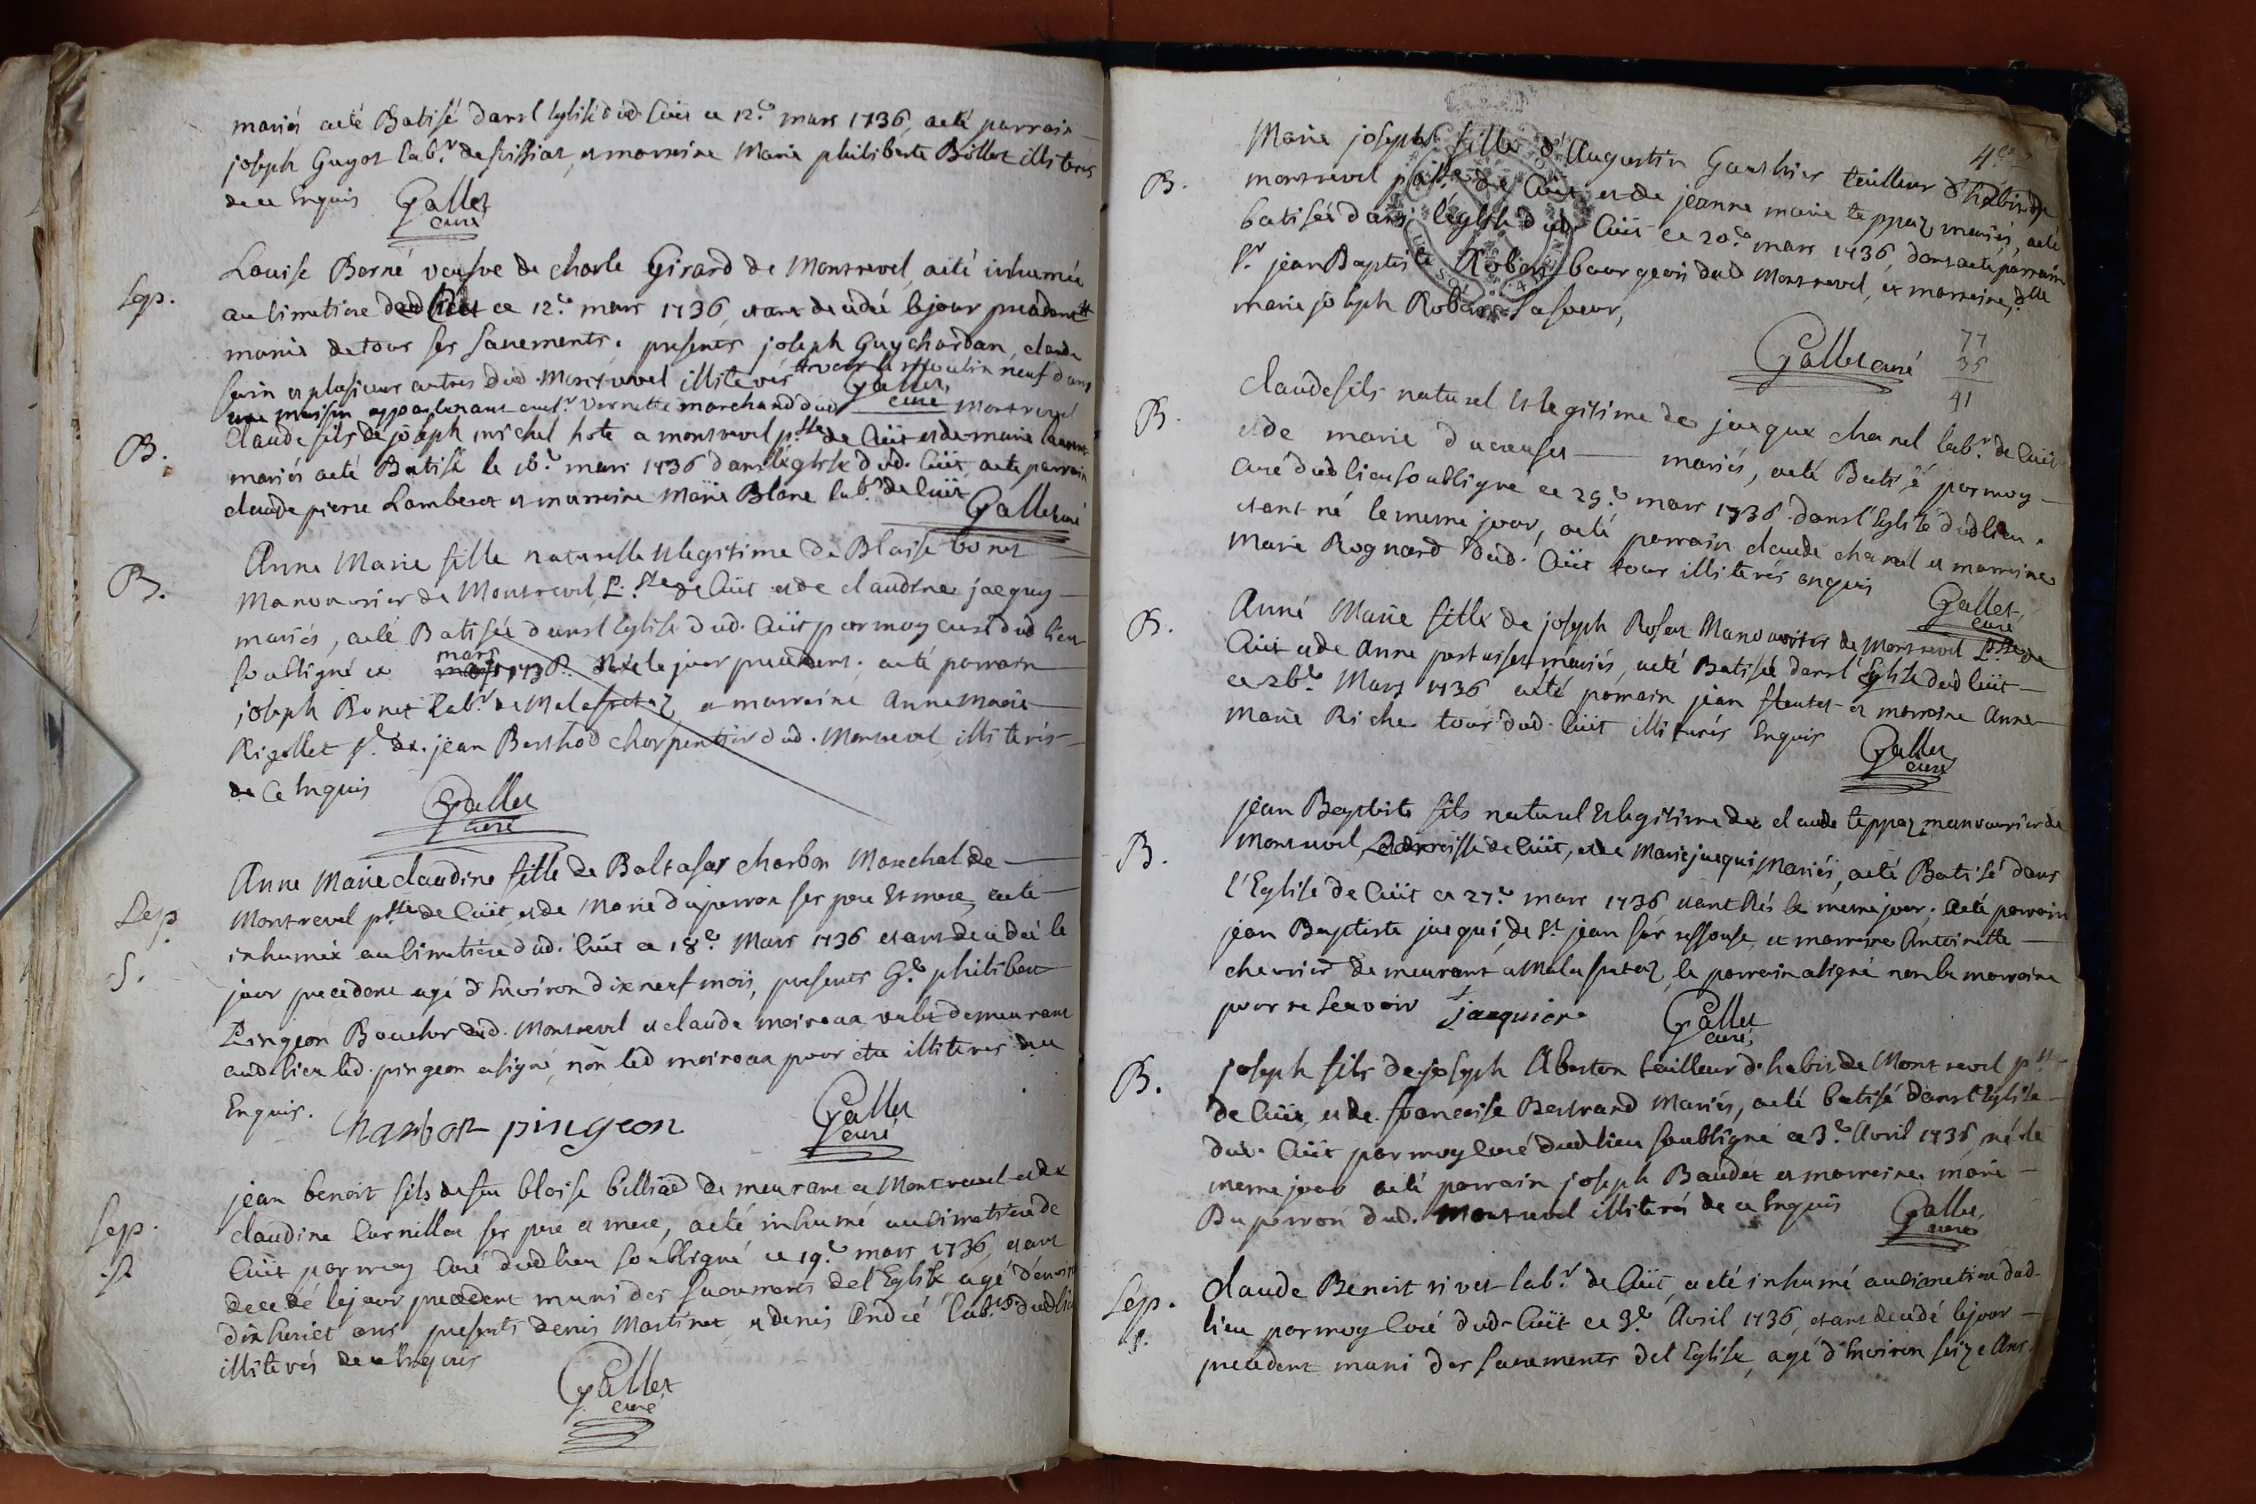 mariés aeté Batisé dans l'Eglise dud. Cüit ce 12.e mars 1736, aeté parrain
joseph Guyot lab.r de foissiat, et marreine Marie philiberte Billet illiterés
de ce Enquis Gallet
curé
Sep.
Louise Borné veufve de charle Girard de Montrevel, aeté inhumée
au cimetiere dud Cüit ce 12.e mars 1736, etant decedée le jour precedent
munie de tous ses sacrements. presents joseph Guychardan, claude
et plusieurs autres dud. Montrevel illiterés moulin neuf dans
Gallet
curé
une maison appartenant au s.r Vernette marchand dud Montrevel
B.
Claude fils de joseph michel hote a montrevel p.sse de Cüit et de marie
mariés aeté Batisé le 16.e mars 1736 dans l'eglise dud. Cüit, aeté parrain
claude pierre Lamberet et marreine Marie Blanc lab.rs de Cüit
Gallet curé
B.
Anne Marie fille naturelle et legitime de Blaise bonet
Manouvrier de Montrevel P.sse de Cüit et de claudine jacquy
mariés, aeté Batisée dans l'Eglise dud. Cüit par moy curé dud lieu
soussigné ce mars 1736. née le jour precedent. aeté parrain
joseph Bonet lab.r de Malafretaz, et marreine Anne Marie
Rigollet f.e de. jean Berthod charpentier dud. Montrevel illiterés
de Ce Enquis
Gallet
curé
Sep
S.
Anne Marie claudine fille de Baltasar charbon Marechal de
Montrevel p.sse de Cüit, et de Marie duperron ses pere et mere, aeté
inhumée au cimetiere dud. Cüit ce 18.e Mars 1736 etant decedée le
jour precedent agé d'Environ dix neuf mois, presents G.e philibert
Pingeon Boucher dud. Montrevel et claude moiroux valet demeurant
aud. lieu led. pingeon a signé, non led moiroux pour etre illiteres de ce
Enquis. charbon pingeon
Gallet
curé
Sep.
jean benoit fils de feu blaise billiad demeurant a Montrevel et de
claudine Curnillon ses pere et mere, aeté inhumé au cimetiere de
Cüit par moy Curé dud lieu soussigné ce 19.e mars 1736, etant
decedé le jour precedent muni des sacrements de l'Eglise agé d'environ
dixhuict ans presents denis Martinet, et denis André lab.rs dud lieu
illiterés de ce Enquis
Gallet
curé
4.e
B.
Marie joseph fille d'Augustin Gauthier tailleur d'habits de
montrevel p.sse de Cüit et de jeanne marie teppaz mariés, aeté
batisée dans l'eglise dud Cüit ce 20.e mars 1736 dont aeté parrain
s.r jean Baptiste Robin bourgeois dud Montrevel, et marreine, d.lle
marie joseph Robin sa soeur,
Gallet curé
77
36
41
B.
claude fils naturel et legitime de jacque charel lab.r de Cüit
et de marie ducreuset mariés, aeté Batisé par moy
curé dud lieu soussigné ce 25.e mars 1736 dans l'Eglise dud lieu.
etant né le meme jour, aeté parrain claude charel et marreine
Marie Rognard dud. Cüit tous illiterés enquis
Gallet
curé
B.
Anne Marie fille de joseph Roset Manouvrier de Montrevel P.sse de
Cüit et de Anne mariés, aeté Batisée dans l'Eglise dud Cüit
ce 26.e Mars 1736 aeté parrain jean et marreine Anne
Marie Riche tous dud. Cüit illiterés Enquis
Gallet
curé
B.
jean Baptiste fils naturel et legitime de claude teppaz manouvrier de
Montrevel, Parroisse de Cüit, et de Marie jacqui Mariés, aeté Batisé dans
l'Eglise de Cüit ce 27.e mars 1736 etant Nés le meme jour. aeté parrain
jean Baptiste jacqui, de s.t jean sur ressouse, et marreine Antoinette
chevrier demeurant a Malafretaz, le parrain a signé non la marreine
pour ne scavoir jacquier
Gallet
curé
B.
joseph fils de joseph Aberton tailleur d'habis de Montrevel p.sse
de Cüit, et de. francoise Bertrand Mariés, aeté batisé dans l'Eglise
dud. Cüit par moy Curé dud lieu soussigné ce 3.e Avril 1736, né le
meme jour aeté parrain joseph Baudet et marreine marie
Duperron dud. Montrevel illiterés de ce enquis
Gallet
curé
Sep.
claude Benoit rivet lab.r de Cüit, aeté inhumé au cimetiere dud.
lieu par moy Curé dud. Cüit ce 3.e Avril 1736, etant decedé le jour
precedent muni des sacrements de l'Eglise, agé d'Environ seize ans.